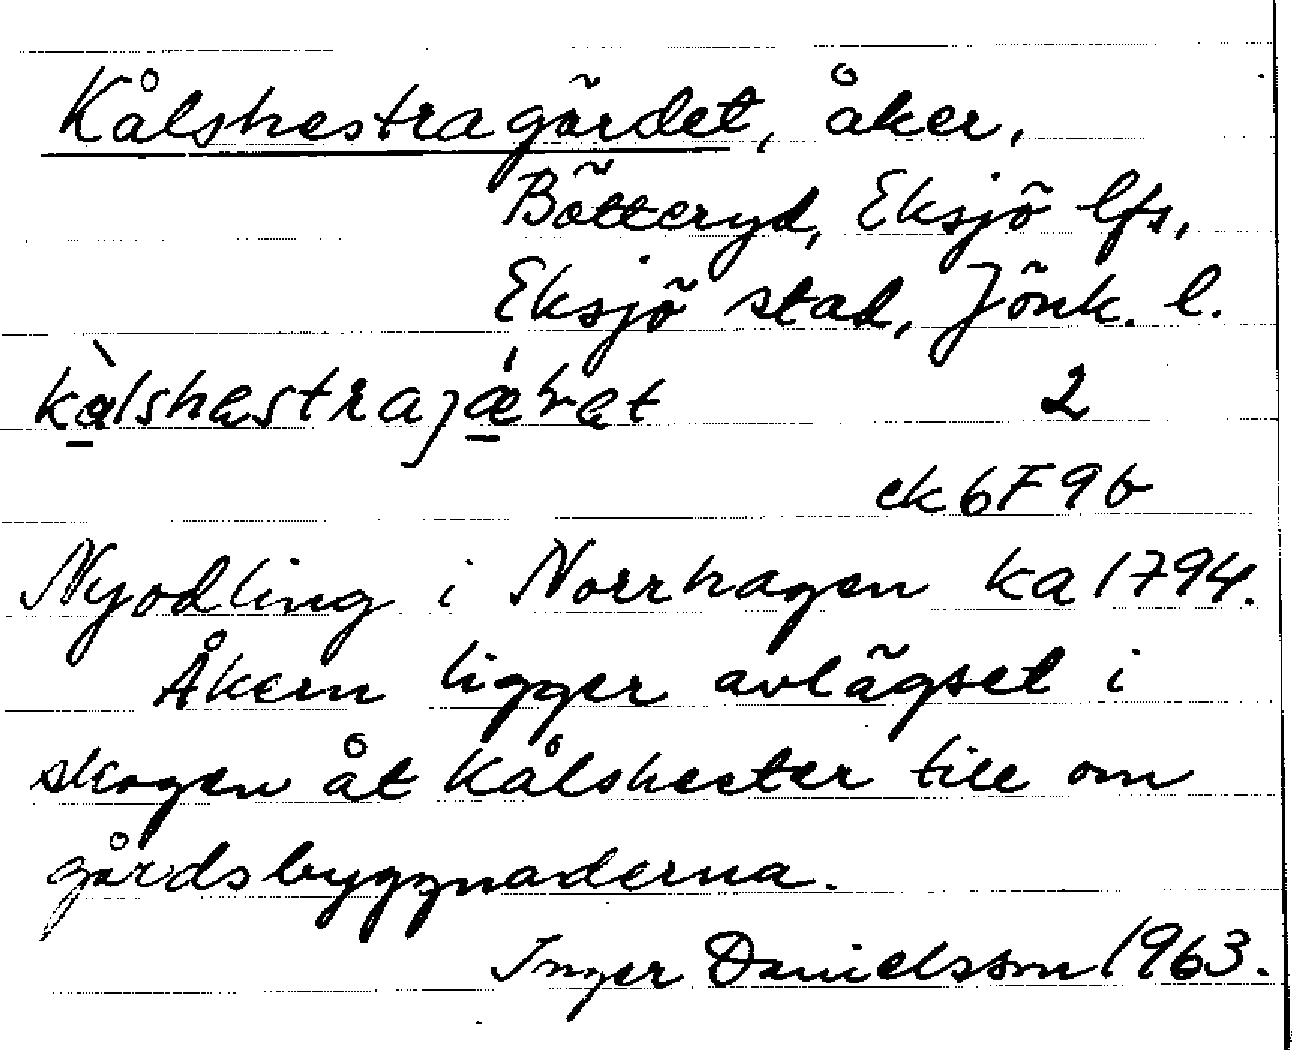 Kålshestragärdet, åker,
Bötteryd, Eksjö lfs,
Eksjö stad, Jönk. l.
2
ek 6 F 9 b
Nyodling i Norrhagen ka 1794.
Åkern ligger avlägset i
skogen åt Kålshester till om
gårdsbyggnaderna.
Inger Danielsson 1963.